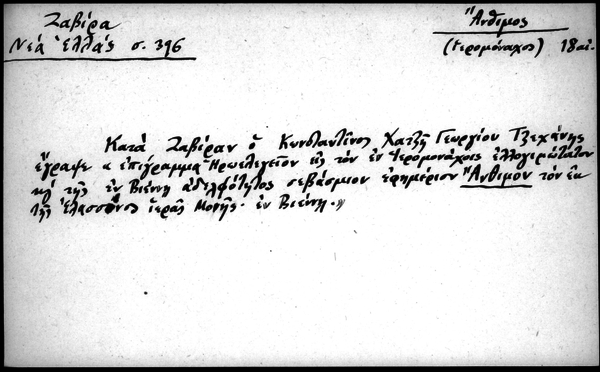 Ζαβίρα
Νέα Ἑλλάς σ. 396
Ἄνθιμος
(ἱερομόναχος) 18 αἰ.
Κατὰ Ζαβίραν ὁ Κωνσταντῖνος Χατζῆ Γεωργίου Τζεχάνης
ἔγραψε « ἐπίγραμμα Ἡρωελεγεῖον εἰς τὸν ἐν Ἱερομονάχοις ἐλλογιμώτατον
καὶ τῆς ἐν Βιέννῃ ἀδελφότητος σεβάσμιον ἐφημέριον Ἄνθιμον τὸν ἐκ
τῆς Ἐλασσῶνος ἱερᾶς Μονῆς. ἐν Βιέννῃ.»